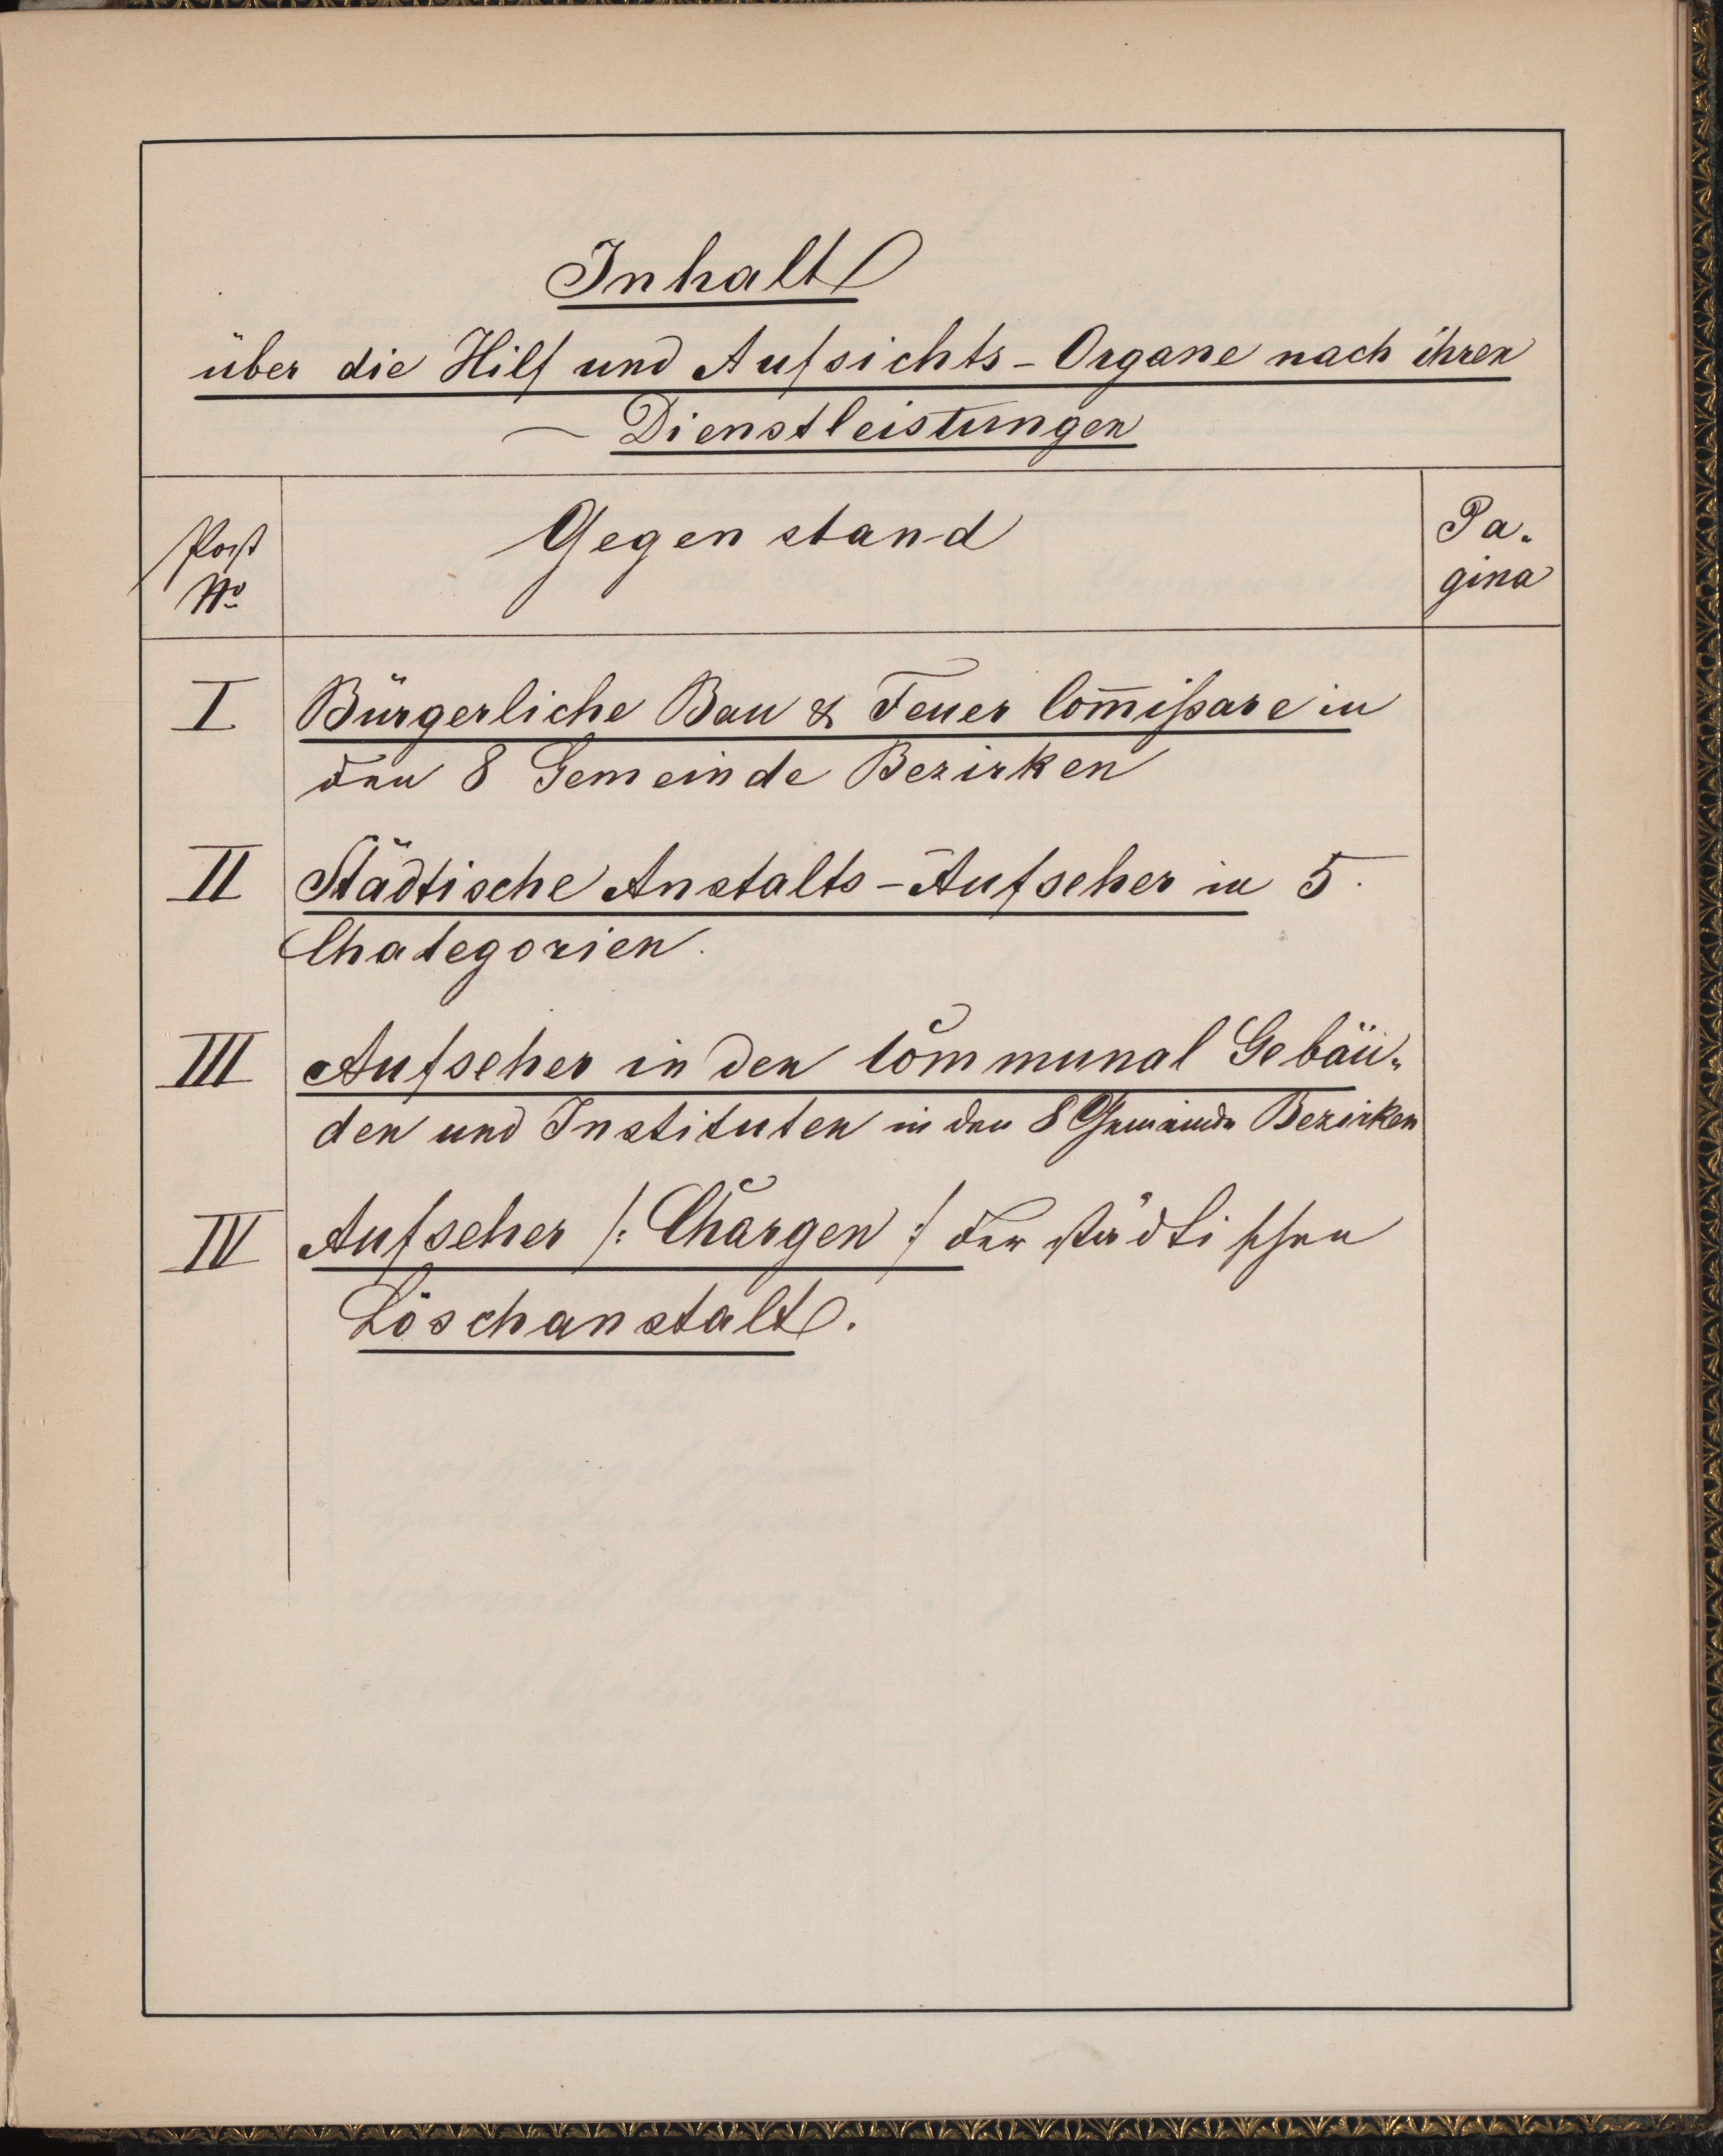 Inhalt
über die Hilf und Aufsichts-Organe nach ihren
Dienstleistungen
Post
No
Gegenstand
Pa-
gina
I Bürgerliche Bau & Feuer Com̄ißare in
den 8 Gemeinde Bezirken
II Städtische Anstalts-Aufseher in 5.
Chategorien.
III Aufseher in den Communal Gebäu-
den und Instituten in den 8 Gemeinde Bezirken
IV Aufseher /: Chargen :/ der städtischen
Löschanstalt.